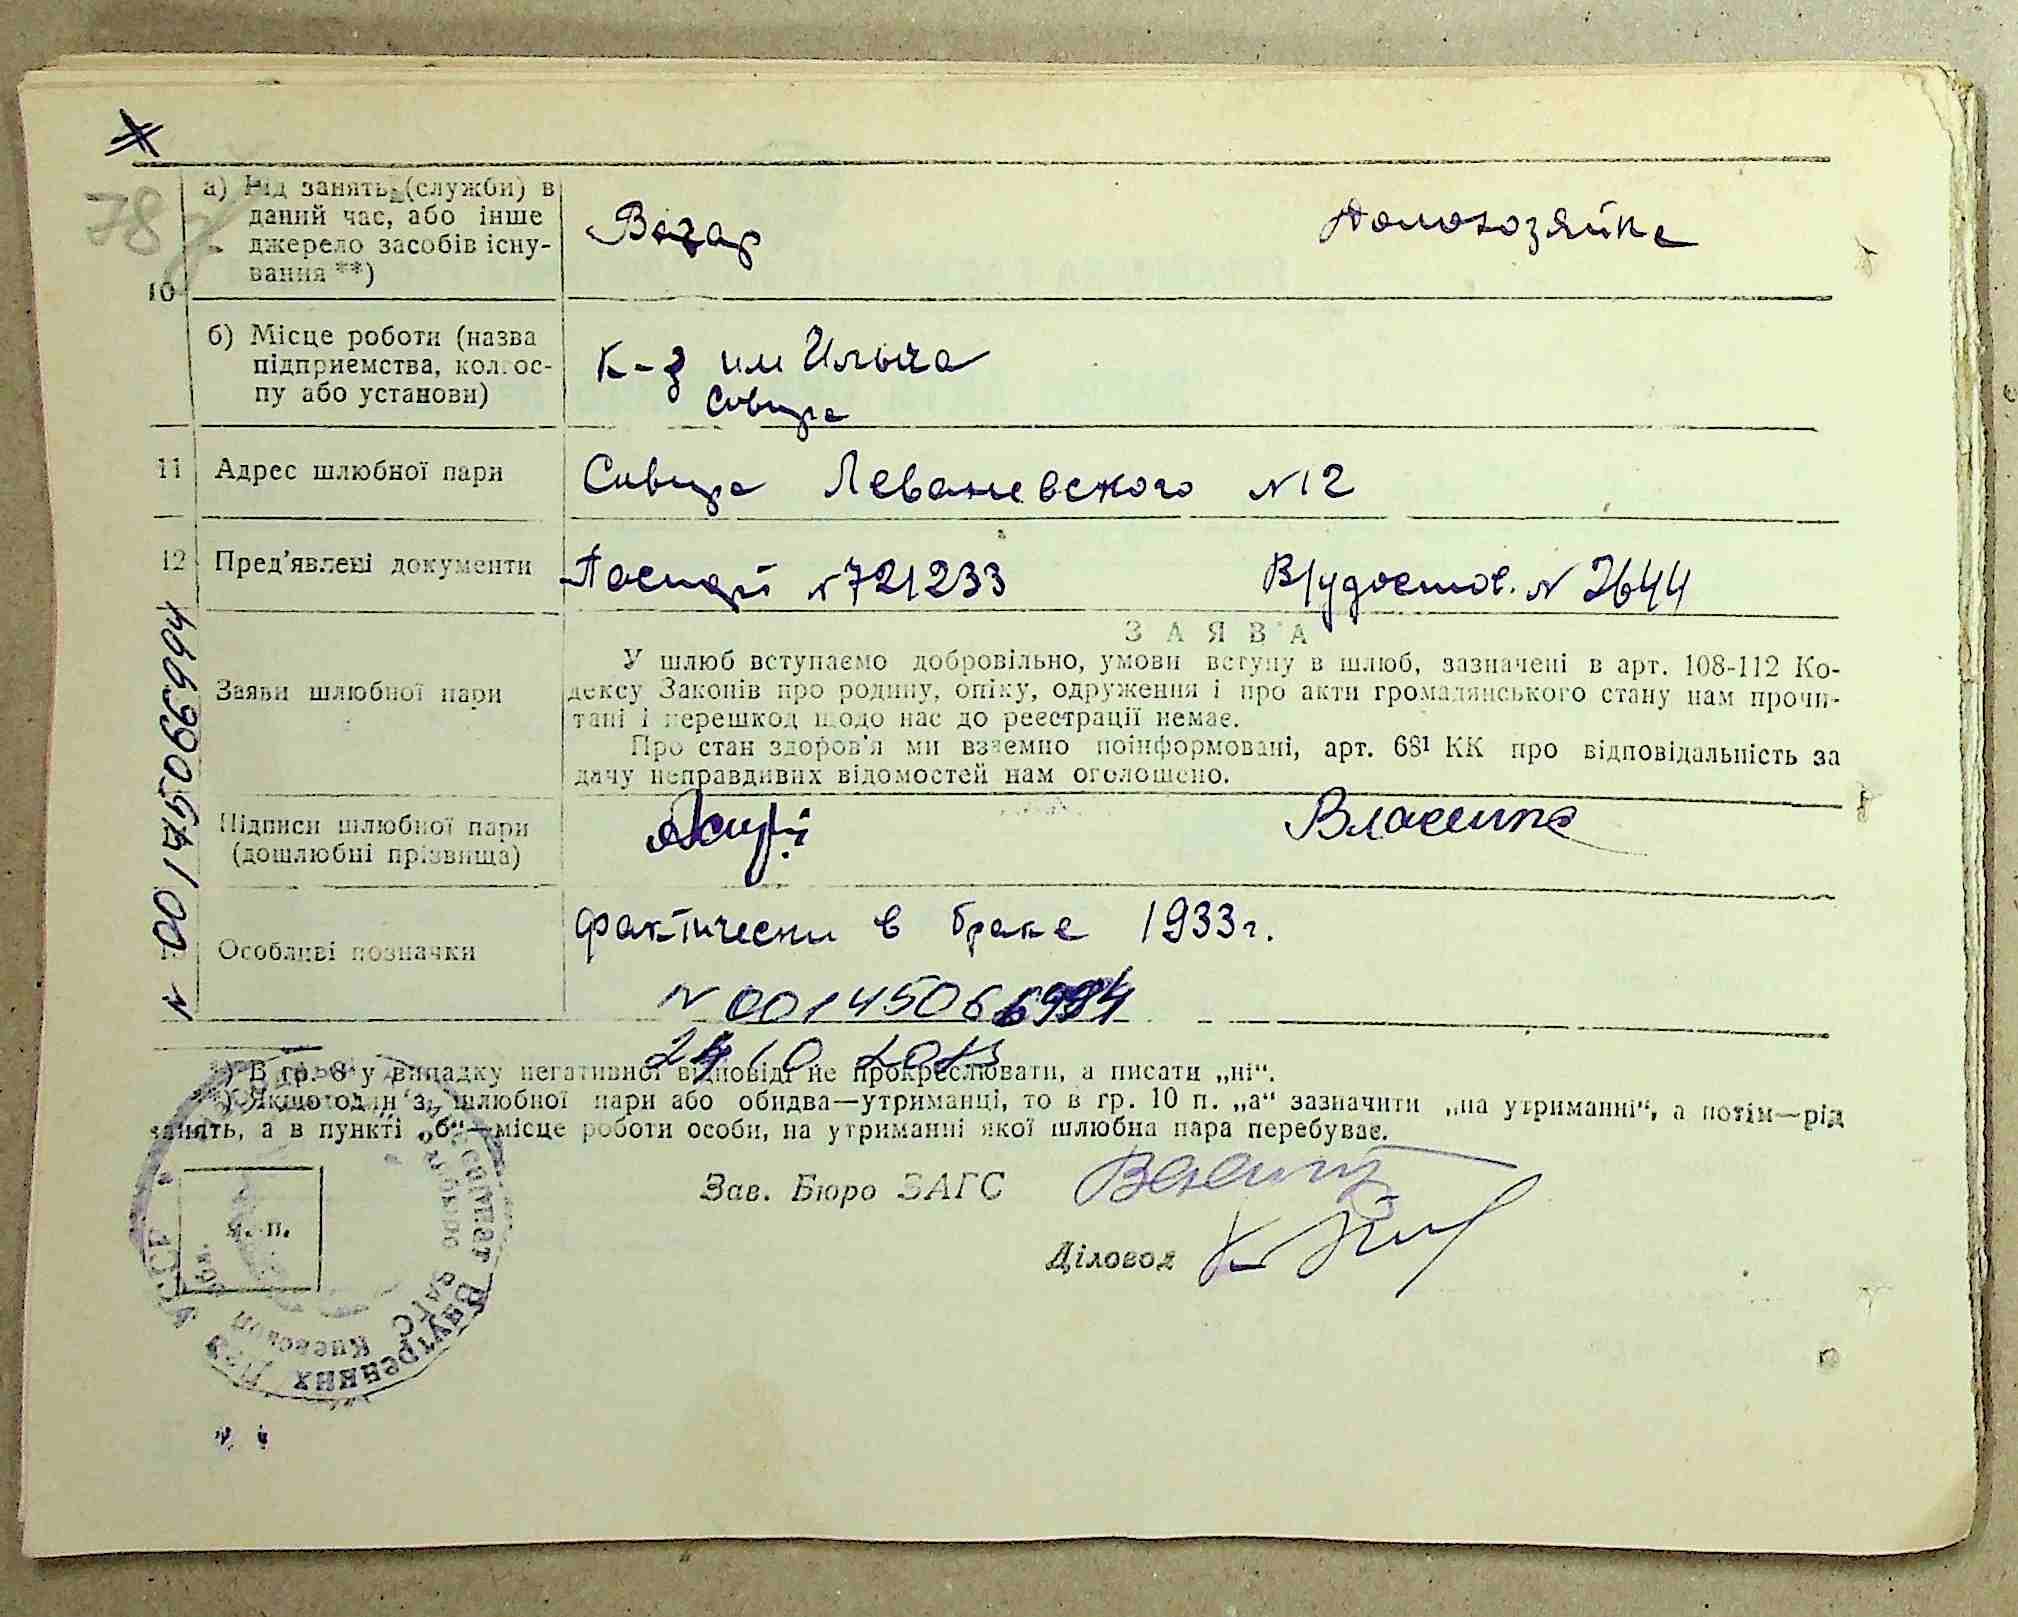 78
а) Рід занять (служби) в
даний час, або інше
джерело засобів існу-
вання **)
Возар
Домохозяйка
10
б) Місце роботи (назва
підприємства, колгос-
пу або установи)
К-з им Ильича
Сквира
11 Адрес шлюбної пари
Сквира Леваневского N 12
12 Пред'явлені документи
Паспорт N 721233
В/удостов. N 2644
Заяви шлюбної пари
ЗАЯВА
У шлюб вступаємо добровільно, умови вступу в шлюб, зазначені в арт. 108-112 Ко-
дексу Законів про родину, опіку, одруження і про акти громадянського стану нам прочи-
тані і перешкод щодо нас до реєстрації немає.
Про стан здоров'я ми взаємно поінформовані, арт. 68¹ КК про відповідальність за
дачу неправдивих відомостей нам оголошено.
Підписи шлюбної пари
(дошлюбні прізвища)
13 Особливі позначки
фактически в браке 1933г.
N 00145066994
24 10 2013
N 00145066994
*) В гр. 8 у випадку негативної відповіді не прокреслювати, а писати „ні“.
**) Якщо один з шлюбної пари або обидва—утриманці, то в гр. 10 п. „а“ зазначити „на утриманні“, а потім—рід
занять, а в пункті „б“—місце роботи особи, на утриманні якої шлюбна пара перебуває.
Зав. Бюро ЗАГС
Діловод
м. п.
Внутренних Дел
ЗАГС Киевской